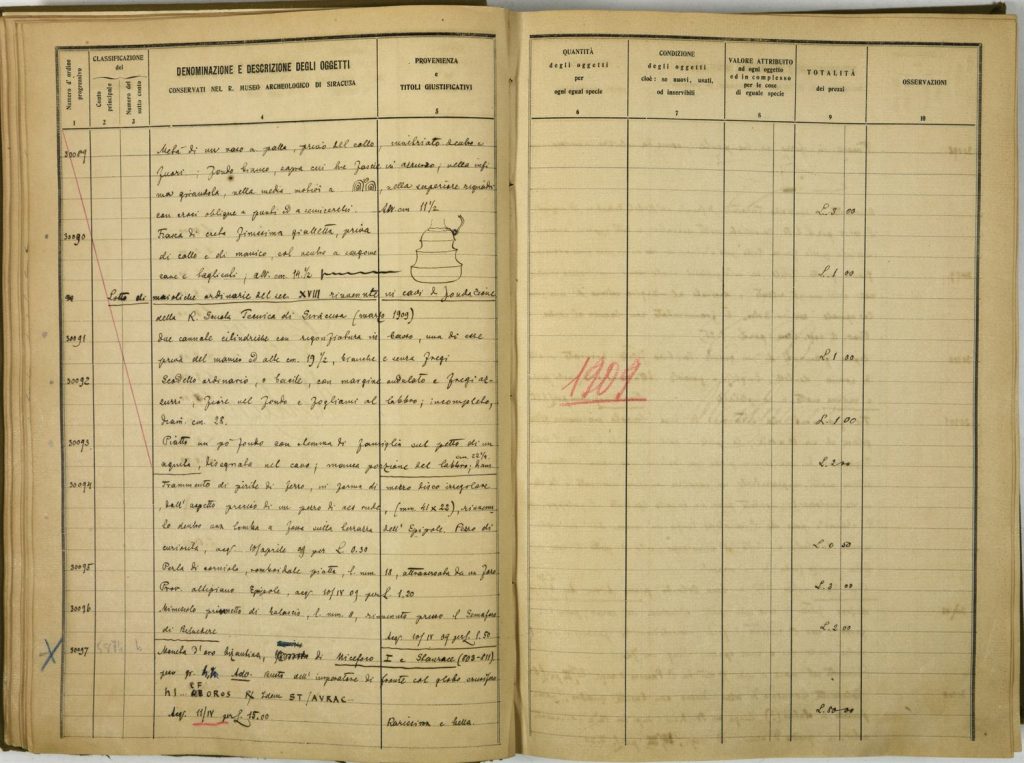 Numero d'ordine progressivo
CLASSIFICAZIONE
del
Conto principale
Numero del sotto conto
DENOMINAZIONE E DESCRIZIONE DEGLI OGGETTI
CONSERVATI NEL R. MUSEO ARCHEOLOGICO DI SIRACUSA
PROVENIENZA
e
TITOLI GIUSTIFICATIVI
1 2 3 4 5
30089 Metà di un vaso a palla, privo del collo, invetriato dentro e
fuori; fondo bianco, sopra cui tre fascie in azzurro; nella infi
ma ghirlanda, nella media motivi a , nella superiore riquadri
con croci oblique a punti ed a semicerchi. Alt. cm 11 1/2
30090 Fiasca di creta finissima gialletta, priva
di collo e di manico, col ventre a
; alt. cm. 14 1/2
Lotto di maioliche ordinarie del sec. XVIII rinvenute in cavi di fondazione
della R. Scuola Tecnica di Siracusa (marzo 1909)
30091 due cannate cilindresse con rigonfiatura in basso, una di esse
priva del manico ed alte cm. 19 1/2, bianche e senza fregi
30092 Scodello ordinario, o bacile, con margine ondulato e fregi az-
zurri, fiore nel fondo e fogliami al labbro; incompleto,
diam. cm. 28.
30093 Piatto un pò fondo con stemma di famiglia sul petto di un
aquila, disegnata nel cavo; manca porzione del labbro; diam
cm. 22 1/4
30094 Frammento di pirite di ferro, in forma di mezzo disco irregolare
, dall'aspetto preciso di un pezzo di aes rude, (mm. 41 x 22), rinvenu-
to dentro una tomba a fossa sulla terrazza dell'Epipole. Pezzo di
curiosità, acq. 10 aprile 09 per L. 0.30
30095 Perla di corniola, romboidale piatta, l. mm. 18, attraversata da un foro
Prov. altipiano Epipole, acq. 10/IV 09 per L 1.20
30096 Minuscolo di , l. mm. 8, rinvenuto presso il Semaforo
di Belvedere Acq. 10/IV 09 per L 1.50
30097 Moneta d'oro bizantina, di Niceforo I e Staurace (803-811).
peso gr. Busto dell'imperatore di fronte col globo crucifero
OROS Idem ST/AVRAC
Acq. 11/IV per L. 15.00 Rarissima e bella.
QUANTITÀ
degli oggetti
per
ogni egual specie
CONDIZIONE
degli oggetti
cioè: se nuovi, usati,
od inservibili
VALORE ATTRIBUITO
ad ogni oggetto
ed in complesso
per le cose
di eguale specie
TOTALITÀ
dei prezzi
OSSERVAZIONI
6 7 8 9 10
L. 3 00
L. 1 00
L. 1 00
1909
L. 1 00
L. 2 00
L. 0 50
L. 3 00
L. 2 00
L. 80 00